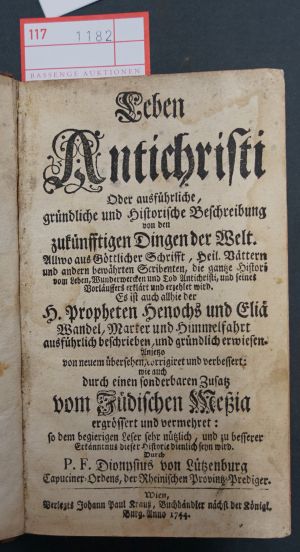 117
1182
BASSENGE AUKTIONEN
Leben
Antichristi
Oder ausführliche,
gründliche und Historische Beschreibung
von den
zukünfftigen Dingen der Welt.
Allwo aus Göttlicher Schrifft, Heil. Vättern
und andern bewährten Scribenten, die gantze Histori
vom Leben, Wunderwercken und Tod Antichristi, und seines
Vorläuffers erklärt und erzehlet wird.
Es ist auch allhie der
H. Propheten Henochs und Eliä
Wandel, Marter und Himmelfahrt
ausführlich beschrieben, und gründlich erwiesen.
Anjetzo
von neuem übersehen, corrigiret und verbessert:
wie auch
durch einen sonderbaren Zusatz
vom Jüdischen Meßia
ergrössert und vermehret:
so dem begierigen Leser sehr nützlich, und zu besserer
Erkänntnus dieser Historie dienlich seyn wird.
Durch
P. F. Dionysius von Lützenburg
Capuciner-Ordens, der Rheinischen Provintz-Prediger.
Wien,
Verlegts Johann Paul Krauß, Buchhändler nächst der Königl.
Burg. Anno 1744.